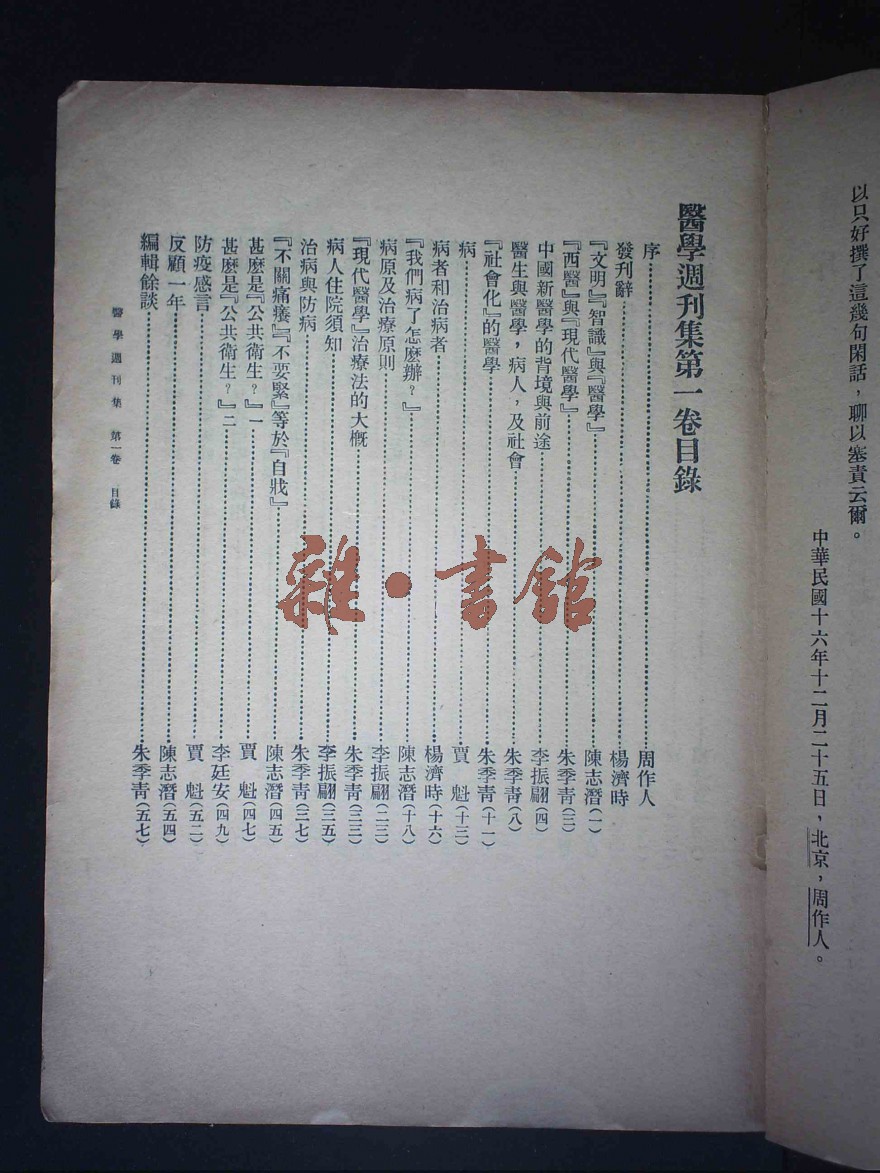 以只好撰了這幾句閑話，聊以塞責云爾。
中華民國十六年十二月二十五日，北京，周作人。
醫學週刊集第一卷目錄
序……周作人
發刊辭……楊濟時
『文明』『智識』與『醫學』……陳志潛(一)
『西醫』與『現代醫學』……朱季青(三)
中國新醫學的背境與前途……李振翩(四)
醫生與醫學，病人，及社會……朱季青(八)
『社會化』的醫學……朱季青(十一)
病……賈　魁(十三)
病者和治病者……楊濟時(十六)
『我們病了怎麽辦？』……陳志潛(十八)
病原及治療原則……李振翩(二三)
『現代醫學』治療法的大概……朱季青(三三)
病人住院須知……李振翩(三五)
治病與防病……朱季青(三七)
『不關痛癢』『不要緊』等於『自戕』……陳志潛(四五)
甚麽是『公共衛生？』一……賈　魁(四七)
甚麽是『公共衛生？』二……李廷安(四九)
防疫感言……賈　魁(五二)
反顧一年……陳志潛(五四)
編輯餘談……朱季青(五七)
醫學週刊集　第一卷　目錄
雜·書館